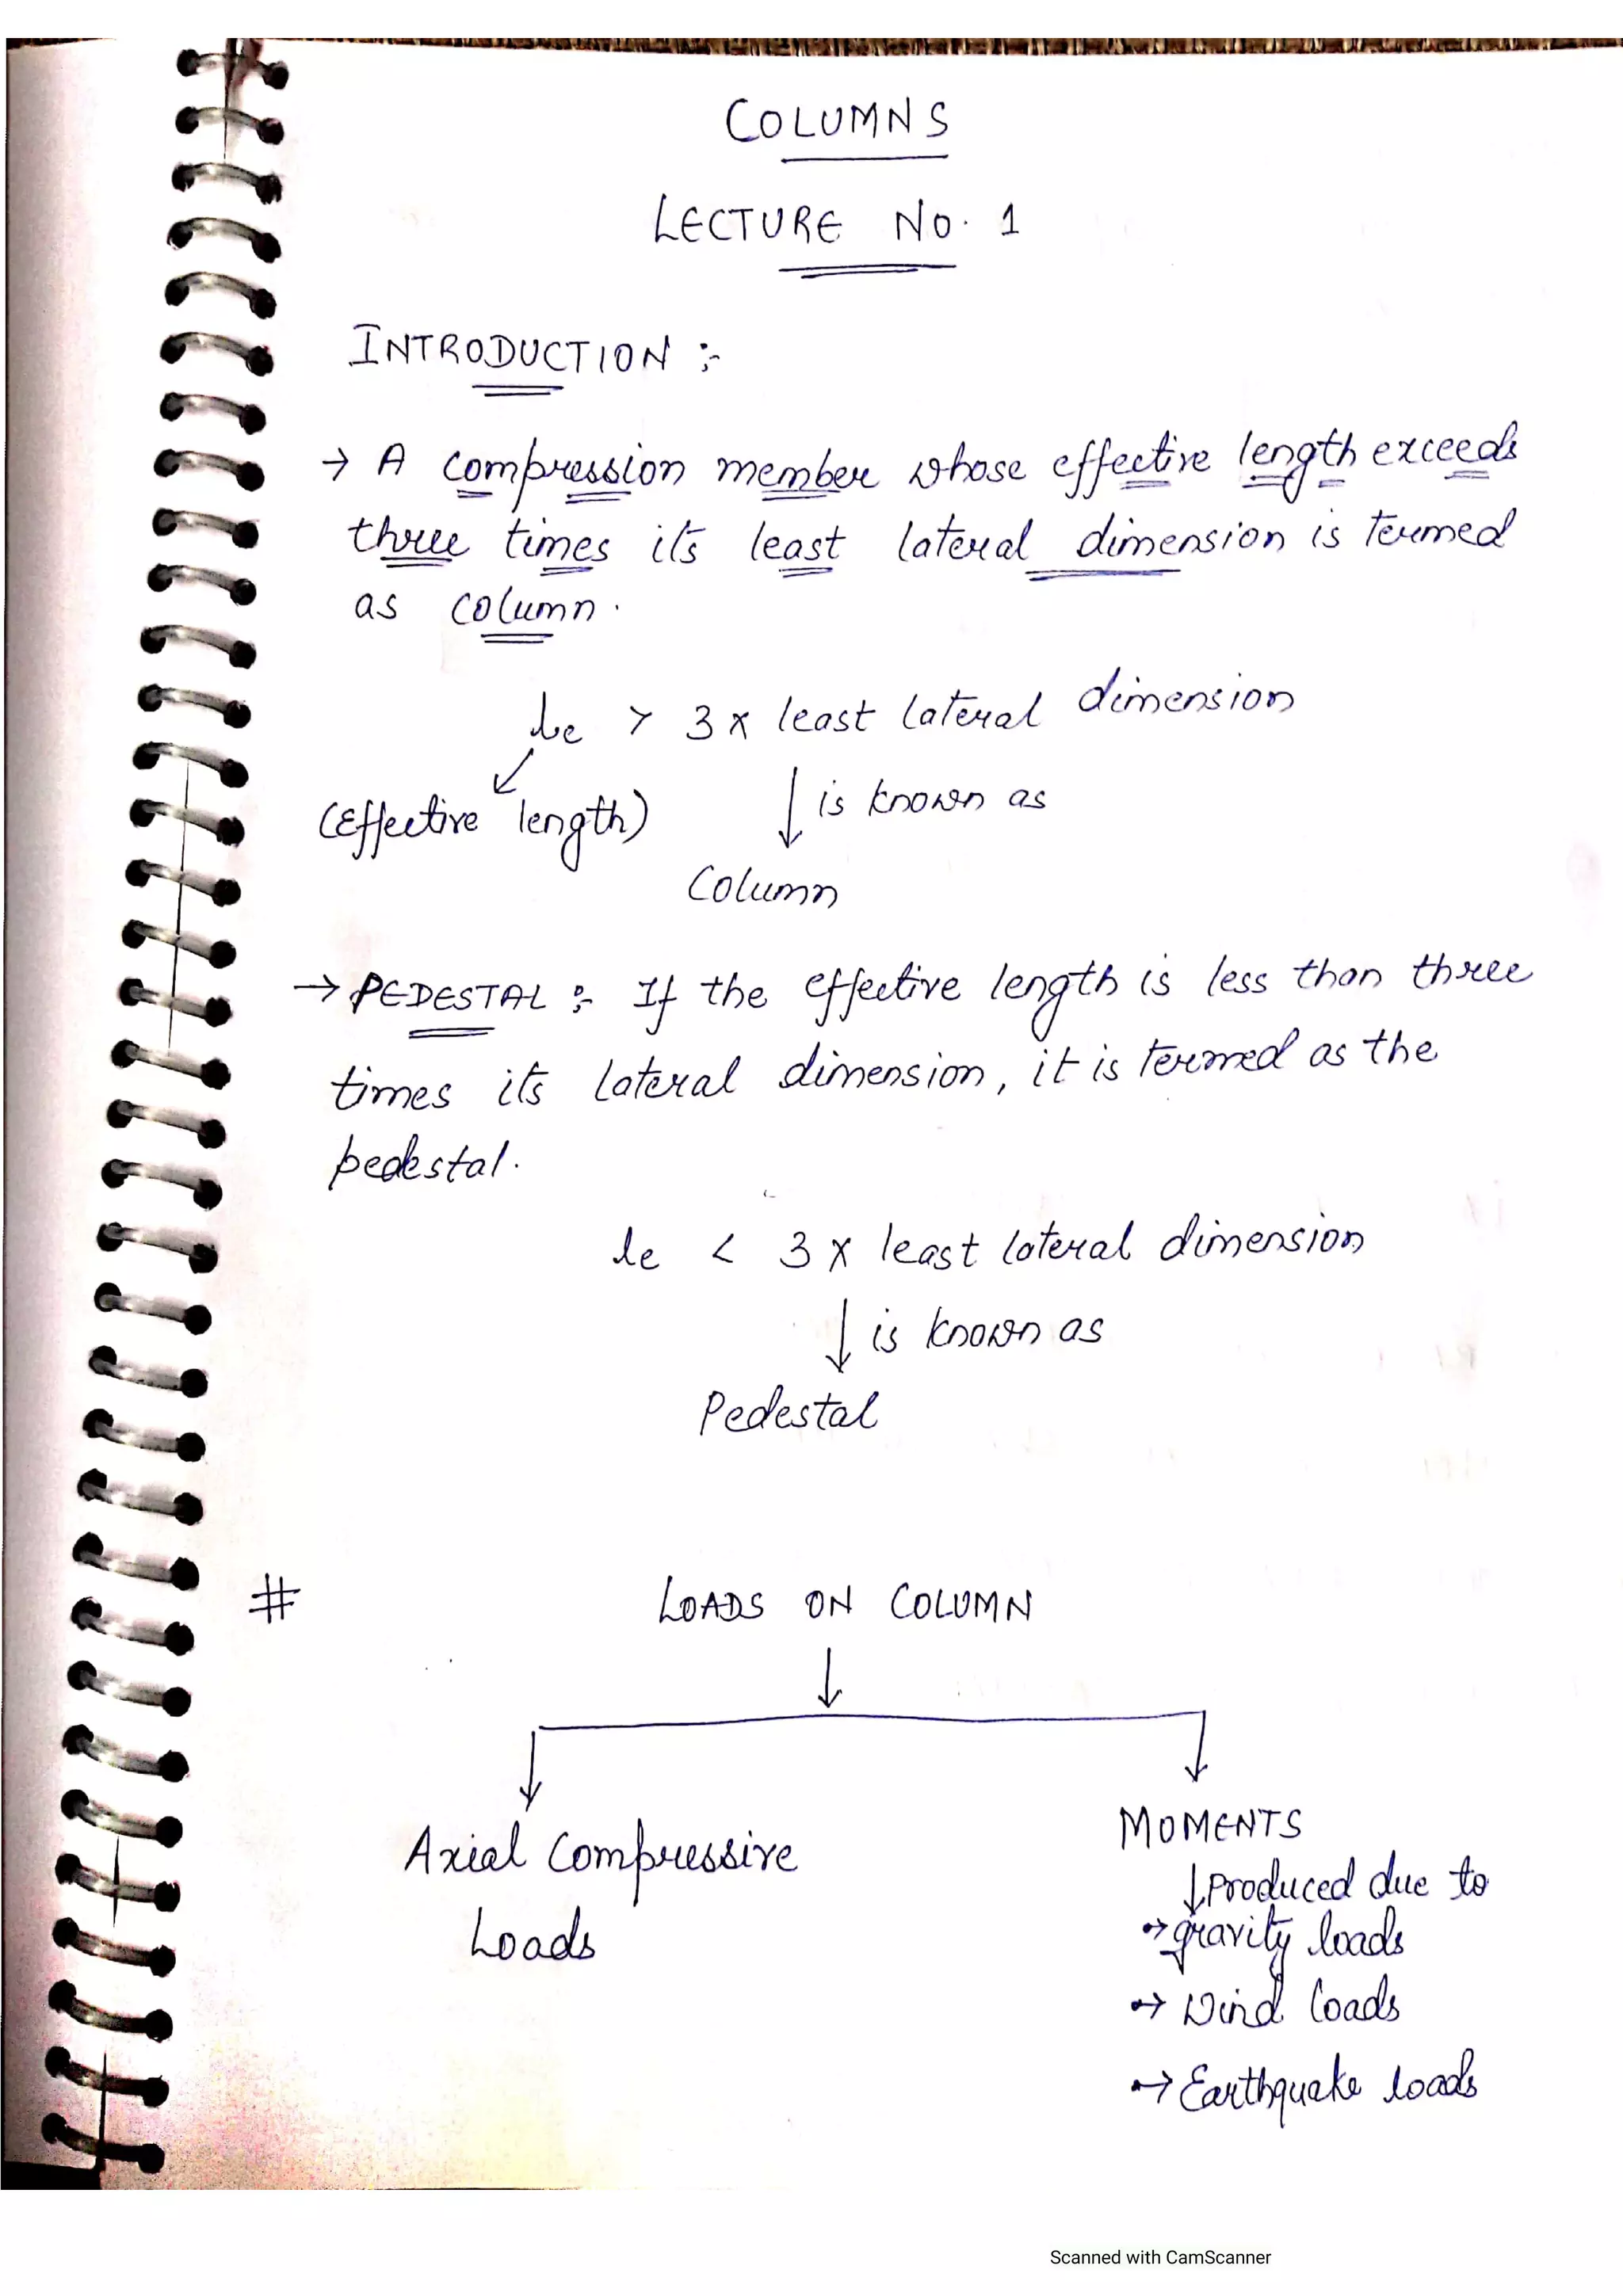 COLUMNS
LECTURE No. 1
INTRODUCTION :-
→ A compression member whose effective length exceeds
three times its least lateral dimension is termed
as column.
le > 3 x least lateral dimension
(Effective length) ↓ is known as
Column
→ PEDESTAL :- If the effective length is less than three
times its lateral dimension, it is termed as the
pedestal.
le < 3 x least lateral dimension
↓ is known as
Pedestal
# LOADS ON COLUMN
Axial Compressive
Loads
MOMENTS
↓ Produced due to
→ gravity loads
→ Wind loads
→ Earthquake loads
Scanned with CamScanner